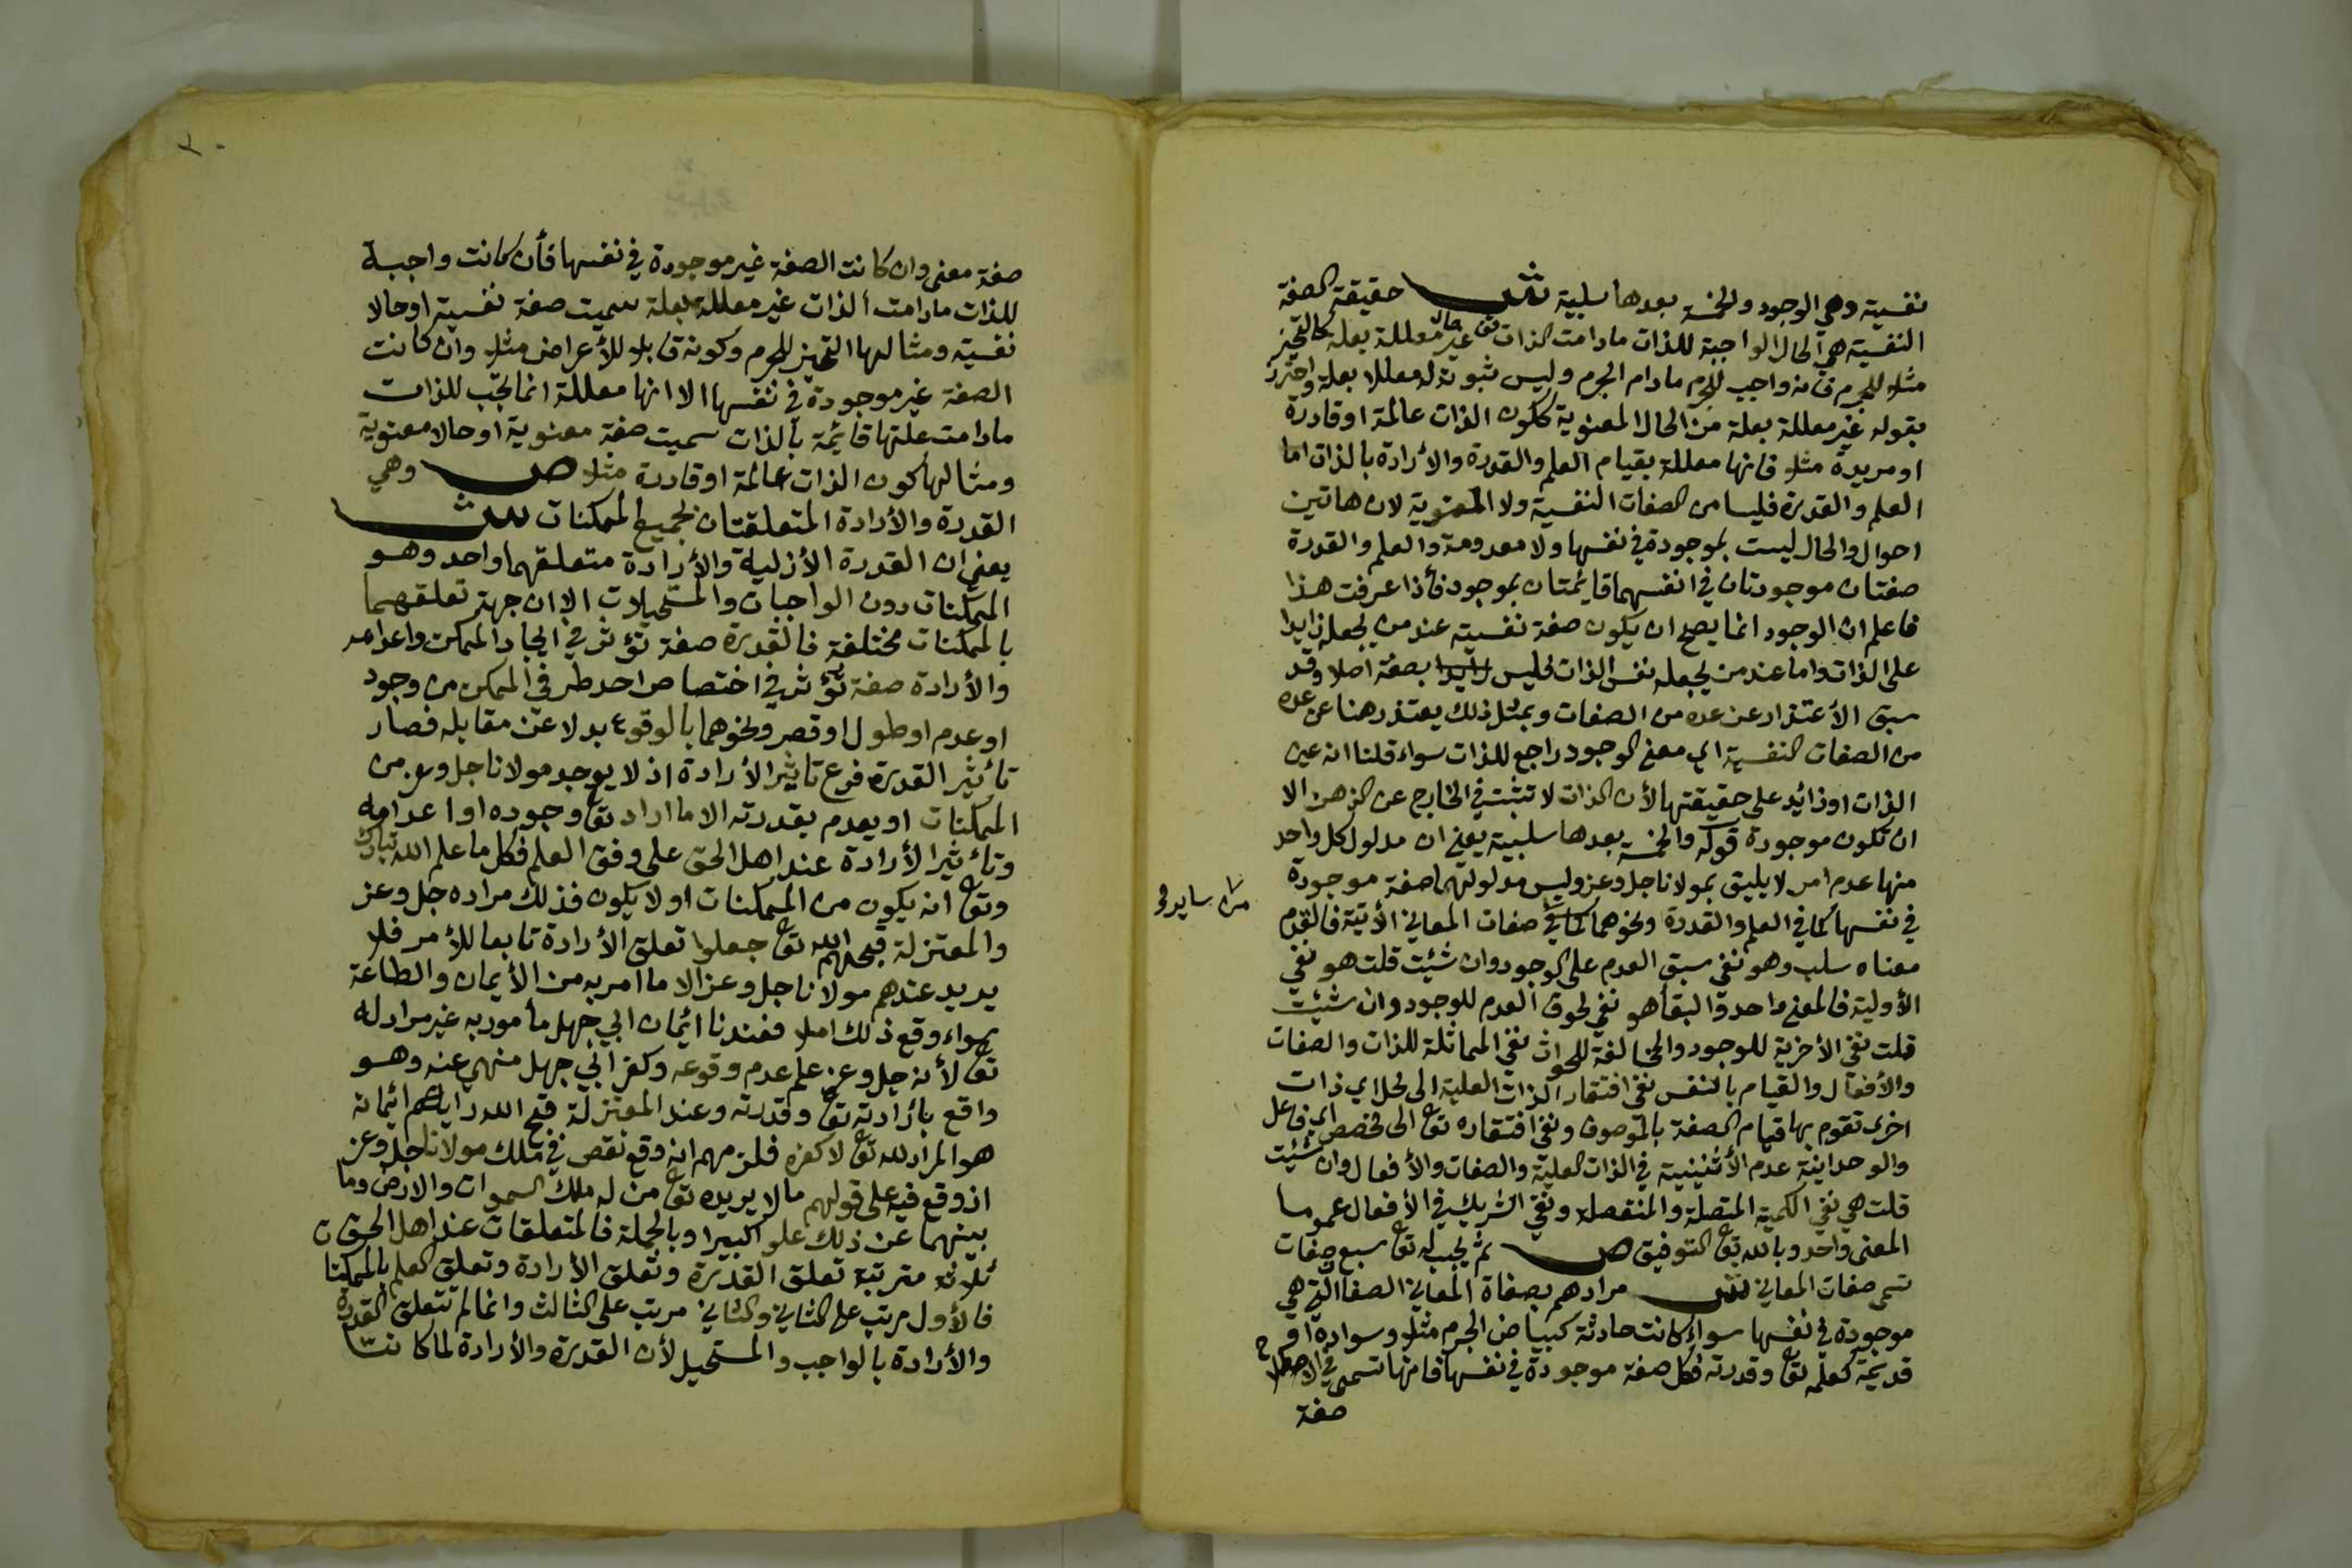 نفسية وهي الوجود والخمسة بعدها سلبية ش حقيقة الصفة
النفسية هي الحال الواجبة للذات مادامت الذات غير معللة بعلة كالتحيز
مثلا للجرم فانه واجب للجرم مادام الجرم وليس ثبوته له معللا بعلة واحترز
بقوله غير معللة بعلة من الحال المعنوية ككون الذات عالمة او قادرة
او مريدة مثلا فانها معللة بقيام العلم والقدرة والأرادة بالذات اما
العلم والقدرة فليسا من الصفات النفسية ولا المعنوية لان هاتين
احوال والحال ليست بموجودة في نفسها ولا معدومة والعلم والقدرة
صفتان موجودتان في انفسهما قايمتان بموجود فأذا عرفت هذا
فاعلم ان الوجود انما يصح ان يكون صفة نفسية عند من يجعله زايدا
على الذات واما عند من يجعله نفس الذات فليس بصفة اصلا وقد
سبق الأعتذار عن عده من الصفات وبمثل ذلك يعتذر هنا عن عده
من الصفات النفسية اي معنى الوجود راجع للذات سواء قلنا انه عين
الذات او زائد على حقيقتها لأن الذات لا تثبت في الخارج عن الذهن الا
ان تكون موجودة قوله والخمسة بعدها سلبية يعني ان مدلول كل واحد
منها عدم امر لا يليق بمولانا جل وعز وليس مدلولتهما صفة موجودة
في نفسها كما في العلم والقدرة ونحوهما كما في صفات المعاني الأتية فالقدم
من سائر
معناه سلب وهو نفي سبق العدم على الوجود وان شئت قلت هو نفي
الأولية فالمعنى واحد والبقأ هو نفي لحوق العدم للوجود وان شئت
قلت نفي الأخرية للوجود والمخالفة للحوادث نفي المماثلة للذات والصفات
والأفعال والقيام بالنفس نفي افتقار الذات العلية الى محل اي ذات
اخرى تقوم بها قيام الصفة بالموصوف ونفي افتقاره تع الى مخصص اي فاعل
والوحدانية عدم الأثنينية في الذات العلية والصفات والأفعال وان شئت
قلت هي نفي الكمية المتصلة والمنفصلة ونفي الشريك في الأفعال عموما
المعنى واحد وبالله تع التوفيق ص ثم يجب له تع سبع صفات
تسمى صفات المعاني ش مرادهم بصفاة المعاني الصفا التي هي
موجودة في نفسها سواء كانت حادثة كبياض الجرم مثلا وسواده او
قديمة كعلمه تع وقدرته فكل صفة موجودة في نفسها فانها تسمى في الاصطلاح
صفة
٢٠
صفة معنى وان كانت الصفة غير موجودة في نفسها فأن كانت واجبة
للذات مادامت الذات غير معللة بعلة سميت صفة نفسية او حالا
نفسية ومثالها التحيز للجرم وكونه قابلا للأعراض مثلا وان كانت
الصفة غير موجودة في نفسها الا انها معللة انما يجب للذات
مادامت علتها قائمة بالذات سميت صفة معنوية او حالا معنوية
ومثالها كون الذات عالمة او قادرة مثلا ص وهي
القدرة والأرادة المتعلقتان بجميع الممكنات ش
يعني ان القدرة الأزلية والأرادة متعلقهما واحد وهو
الممكنات دون الواجبات والمستحيلات الا ان جهة تعلقهما
بالممكنات مختلفة فالقدرة صفة تؤثر في ايجاد الممكن واعدامه
والأرادة صفة تؤثر في اختصاص احد طرفي الممكن من وجود
او عدم او طول او قصر ونحوهما بالوقوع بدلا عن مقابله فصار
تأثير القدرة فرع تاثير الأرادة اذ لا يوجد مولانا جل وعز من
الممكنات او يعدم بقدرته الا ما اراد تع وجوده او اعدامه
وتأثير الأرادة عند اهل الحق على وفق العلم فكل ما علم الله تبارك
وتع انه يكون من الممكنات او لا يكون فذلك مراده جل وعز
والمعتزلة قبحهم الله تع جعلوا تعلق الأرادة تابعا للأمر فلا
يريد عندهم مولانا جل وعز الا ما امر به من الأيمان والطاعة
سواء وقع ذلك املا فعندنا ائمان ابي جهل مأمور به غير مراد له
تع لأنه جل وعز علم عدم وقوعه وكفر ابي جهل منهي عنه وهو
واقع بأرادته تع وقدرته وعند المعتزلة قبح الله رايهم ائمانه
هو المراد لله تع لا كفره فلزمهم انه وقع نقص في ملك مولانا جل وعز
اذ وقع فيه على قولهم ما لا يريده تع من له ملك السموات والارض وما
بينهما عن ذلك علوا كبيرا وبالجملة فالمتعلقات عند اهل الحق
ثلاثة مترتبة تعلق القدرة وتعلق الأرادة وتعلق العلم بالممكنا
فالأول مرتب على الثاني والثاني مرتب على الثالث وانما لم تتعلق القدرة
والأرادة بالواجب والمستحيل لأن القدرة والأرادة لما كانتا